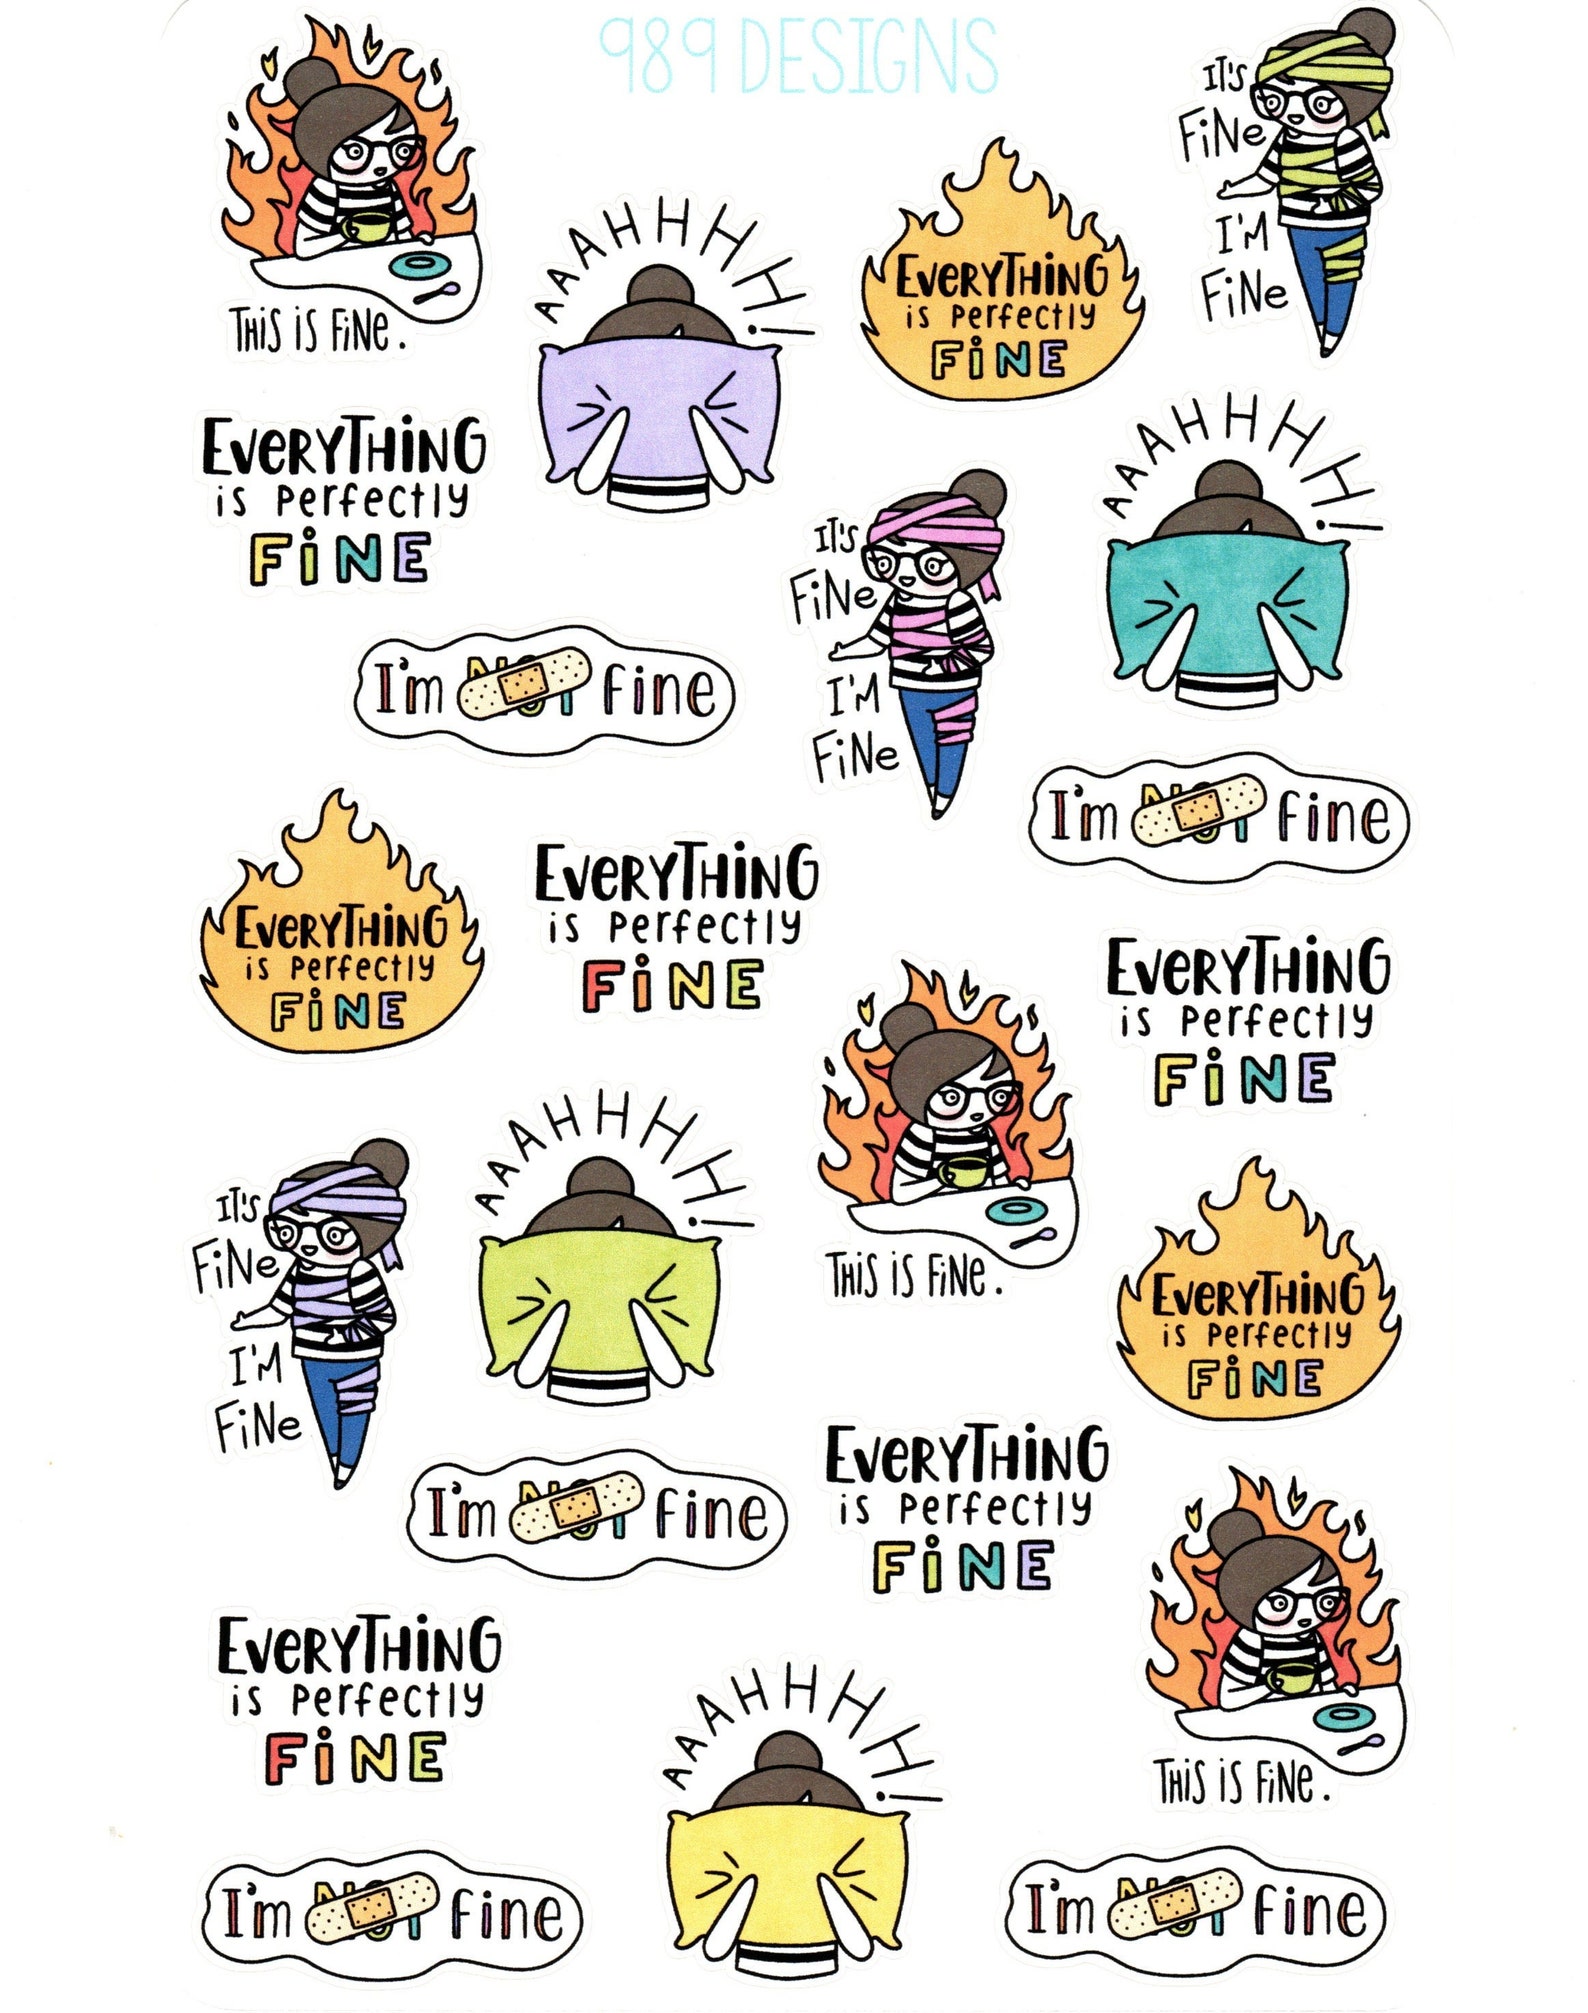 989 DESIGNS
THiS iS FiNe.
AAAHHHH!
EVeRYTHiNG
is perfectly
FiNE
IT'S
FiNe
I'M
FiNe
EVeRYTHiNG
is perfectly
FiNE
IT'S
FiNe
I'M
FiNe
AAAHHHH!
I'm NOT fine
I'm NOT fine
EVeRYTHiNG
is perfectly
FiNE
EVeRYTHiNG
is perfectly
FiNE
THiS iS FiNe.
EVeRYTHiNG
is perfectly
FiNE
IT'S
FiNe
I'M
FiNe
AAAHHHH!
EVeRYTHiNG
is perfectly
FiNE
I'm NOT fine
EVeRYTHiNG
is perfectly
FiNE
THiS iS FiNe.
EVeRYTHiNG
is perfectly
FiNE
AAAHHHH!
I'm NOT fine
I'm NOT fine